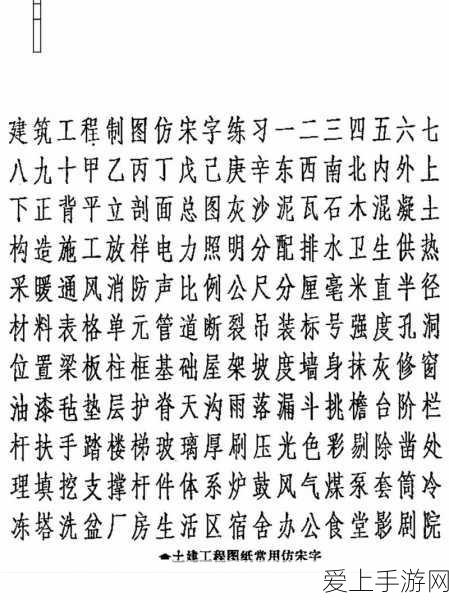 建筑工程制图仿宋字练习一二三四五六七
八九十甲乙丙丁戊己庚辛东西南北内外上
下正背平立剖面总图灰沙泥瓦石木混凝土
构造施工放样电力照明分配排水卫生供热
采暖通风消防声比例公尺分厘毫米直半径
材料表格单元管道断裂吊装标号强度孔洞
位置梁板柱框基础屋架坡度墙身抹灰修窗
油漆毡垫层护脊天沟雨落漏斗挑檐台阶栏
杆扶手踏楼梯玻璃厚刷压光色彩剔除凿处
理填挖支撑杆件体系炉鼓风气煤泵套筒冷
冻塔洗盆厂房生活区宿舍办公食堂影剧院
土建工程图纸常用仿宋字
爱上手游网